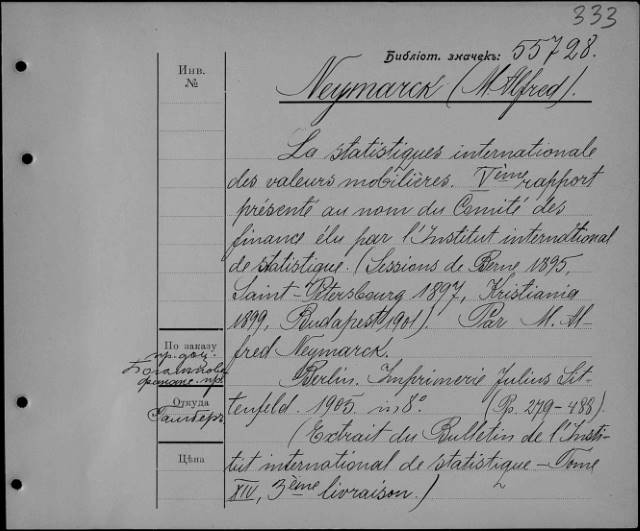 333
Библіот. значекъ: 55728.
Инв.
№
Neymarck (M. Alfred).
La statistiques internationale
des valeurs mobilières. Vème rapport
présenté au nom du Comité des
finance élu par l'Institut international
de statistique. (Sessions de Berne 1895,
Saint-Petersbourg 1897, Kristiania
1899, Budapest 1901). Par M. Al-
fred Neymarck.
По заказу
Berlin. Imprimerie Julius Sit-
tenfeld. 1905. in 8° (Pp. 279-488).
Откуда
(Extrait du Bulletin de l'Insti-
tut international de statistique - Tome
XIV, 3ème livraison.)
Цѣна